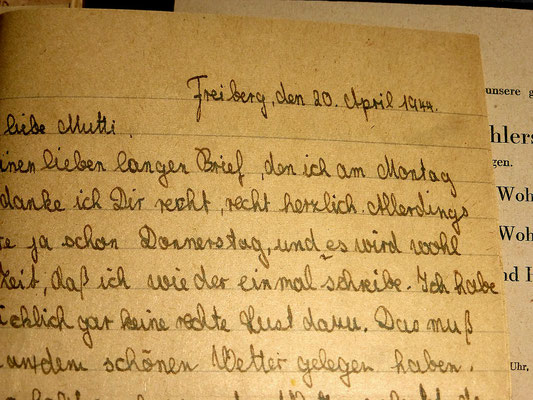 Freiberg, den 20. April 1944.
liebe Mutti,
inen lieben langen Brief, den ich am Montag
danke ich Dir recht, recht herzlich. Allerdings
e ja schon Donnerstag, und es wird wohl
Zeit, daß ich wieder einmal schreibe. Ich habe
icklich gar keine rechte Lust dazu. Das muß
an dem schönen Wetter gelegen haben.
unsere g
hlers
gen.
Woh
Woh
nd H
Uhr,